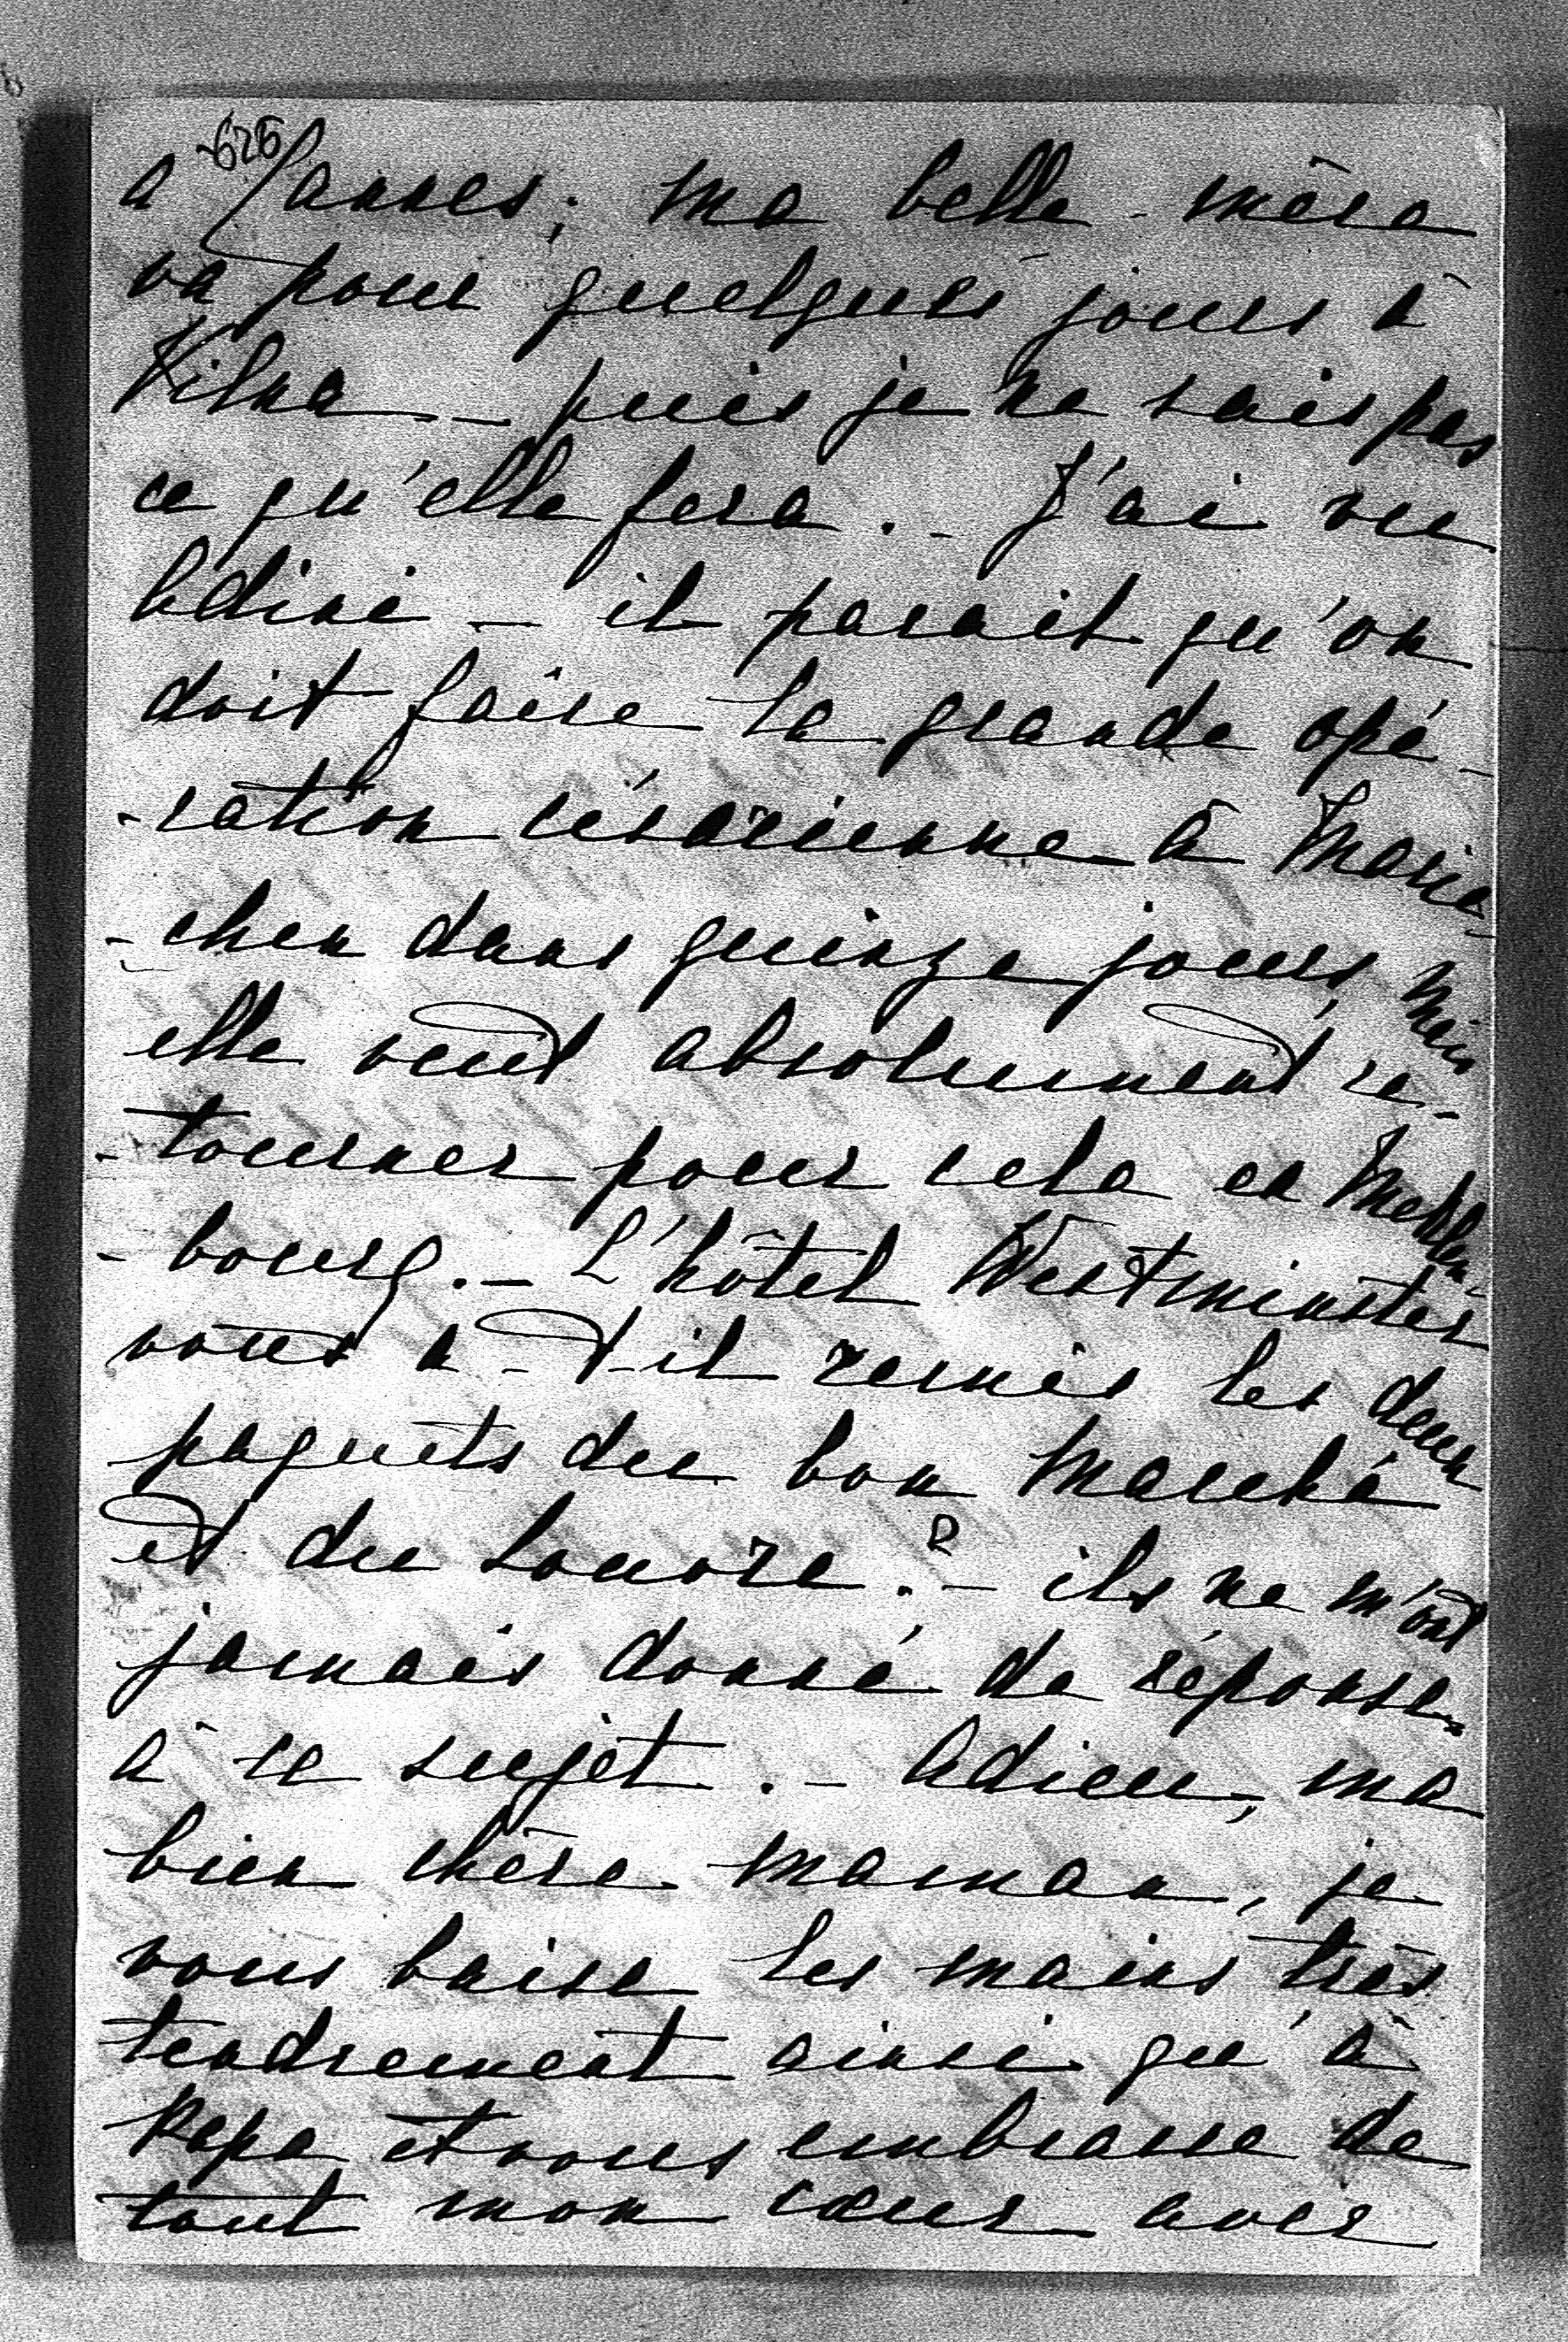 626
à Cannes; ma belle-mère
va pour quelques jours à
Vilna – puis je ne sais pas
ce qu'elle fera. – J'ai vu
Adini – il parait qu'on
doit faire la grande opé-
-ration césarienne à Marie-
-chen dans quinze jours, mais
elle veut absolument re-
-tourner pour cela en Meklen-
-bourg. – L'hôtel Westminster
vous a-t-il remis les deux
paquets du bon Marché
et du Louvre? – ils ne m'ont
jamais donné de réponse
à ce sujet. – Adieu, ma
bien chère Maman, je
vous baise les mains très
tendrement ainsi qu'à
Papa et vous embrasse de
tout mon cœur avec